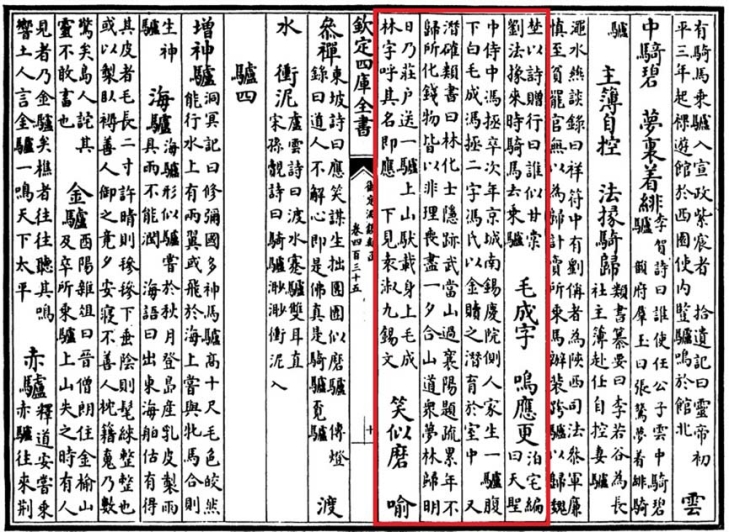 有騎馬乘驢入宣政紫宸者 拾遺記曰靈帝初
平三年起裸遊館於西園使內豎驢鳴於館北 雲
中騎碧 夢裏着緋 李賀詩曰誰使任公子雲中騎碧
驢 府羣玉曰張鷟夢着緋騎
驢 主簿自控 法掾騎歸 類書纂要曰李若谷為長
社主簿赴任自控妻驢
澠水燕談錄曰祥符中有劉偁者為陝西司法叅軍廉
慎至罷官無以為歸計賣所乘馬辦裝跨驢以歸魏
埜以詩贈行曰誰似甘棠
劉法掾來時騎馬去乘驢 毛成字 鳴應更 泊宅編
曰天聖
中侍中馮拯卒次年京城南錫慶院側人家生一驢腹
下白毛成馮拯二字馮氏以金贖之潛育於室中 又
潛確類書曰林化士隱跡武當山過襄陽題疏累年不
歸所化錢物皆以非理喪盡一夕合山道衆夢林歸明
日乃莊户送一驢上山馱載身上毛成
林字呼其名即應 下見袁淑九錫文 笑似磨 喻
欽定四庫全書 卷四百三十五 十
叅禪 東坡詩曰應笑謀生拙團團似磨驢 傳燈
錄曰道人不解心即是佛真是騎驢覓驢 渡
水 衝泥 盧雲詩曰波水蹇驢雙耳直
宋孫覿詩曰騎驢渺渺衝泥入
驢四
增神驢 洞冥記曰修彌國多神馬驢高十尺毛色皎然
能行水上有兩翼或飛於海上當與牝馬合則
生神
驢 海驢 海驢形似驢嘗於秋月登島產乳皮製雨
具雨不能潤 海語曰出東海舶估有得
其皮者毛長二寸許晴則毿毿下垂陰則整整也
或以製臥褥善人御之竟夕安寢不善人枕藉魂乃數
驚矣島人詫其
靈不敢畜也 金驢 酉陽雜俎曰晉僧朗住金榆山
及卒所乘驢上山失之時有人
見者乃金驢矣樵者往往聽其鳴
響土人言金驢一鳴天下太平 赤驢 釋道安嘗東
赤驢往來荊